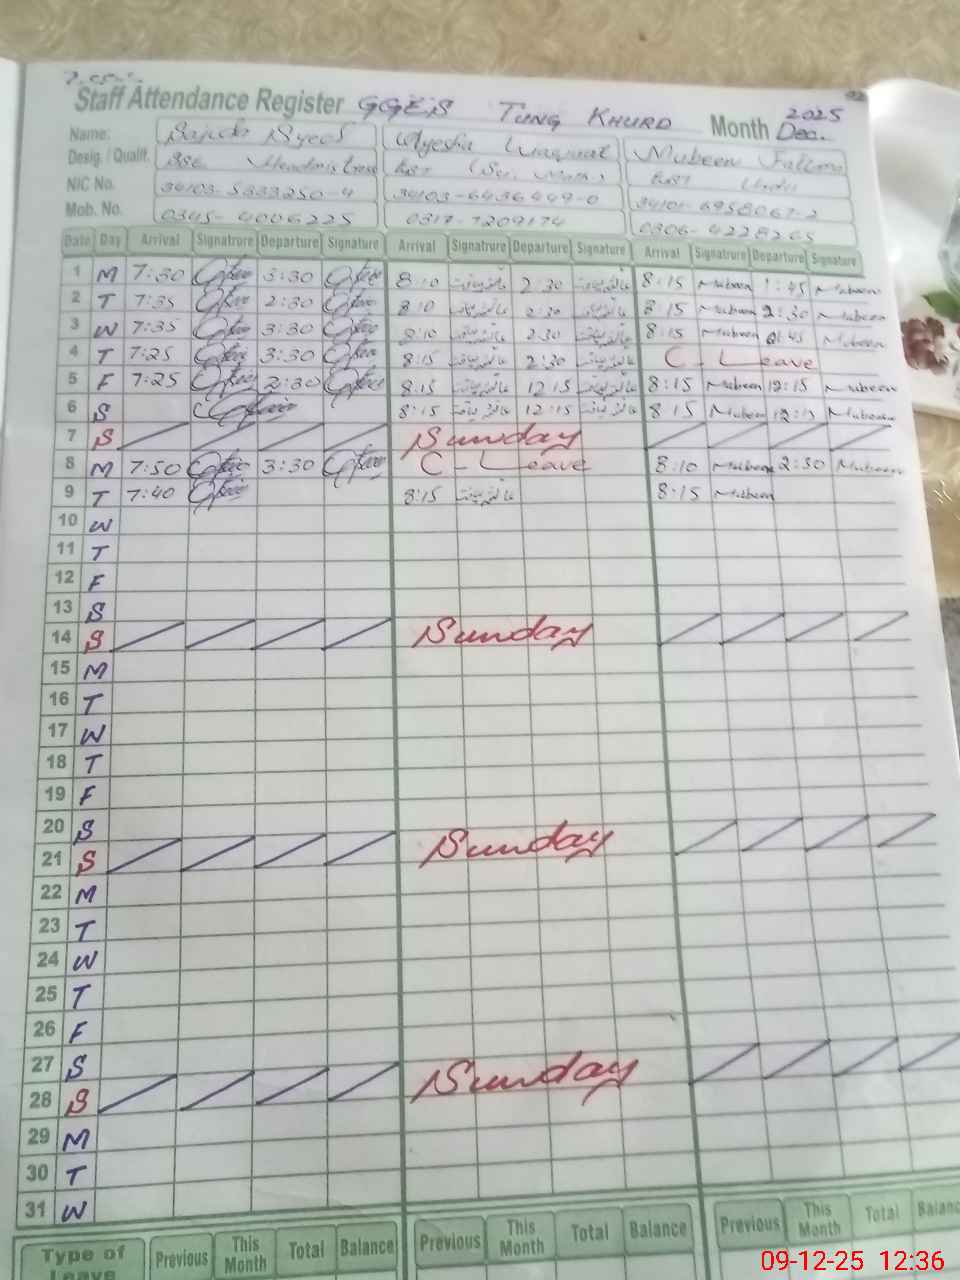 Staff Attendance Register GGES TUNG KHURD Month Dec. 2025
Name: Sajida Ayesha Mubeen Fatima
Desig. / Qualif. Headmistress EST (Sci. Math) EST Urdu
NIC No. 34103-5333250-4 34103-6436449-0 34101-6958067-2
Mob. No. 0345-4006225 0317-7209174
Date Day Arrival Signatrure Departure Signature Arrival Signatrure Departure Signature Arrival Signatrure Departure Signature
1 M 7:30 3:30 8:10 2:30 8:15 Mubeen 1:45 Mubeen
2 T 7:35 2:30 8:10 2:30 8:15 Mubeen 2:30 Mubeen
3 W 7:35 3:30 8:10 2:30 8:15 Mubeen Mubeen
4 T 7:25 3:30 8:15 2:30 C-Leave
5 F 7:25 2:30 8:15 12:15 8:15 Mubeen 12:15 Mubeen
6 S 8:15 12:15 8:15 Mubeen 12:15 Mubeen
7 S Sunday
8 M 7:50 3:30 C-Leave 8:10 Mubeen 2:30 Mubeen
9 T 7:40 8:15 8:15 Mubeen
10 W
11 T
12 F
13 S
14 S Sunday
15 M
16 T
17 W
18 T
19 F
20 S
21 S Sunday
22 M
23 T
24 W
25 T
26 F
27 S
28 S Sunday
29 M
30 T
31 W
Type of Leave Previous This Month Total Balance Previous This Month Total Balance Previous This Month Total Balance
09-12-25 12:36